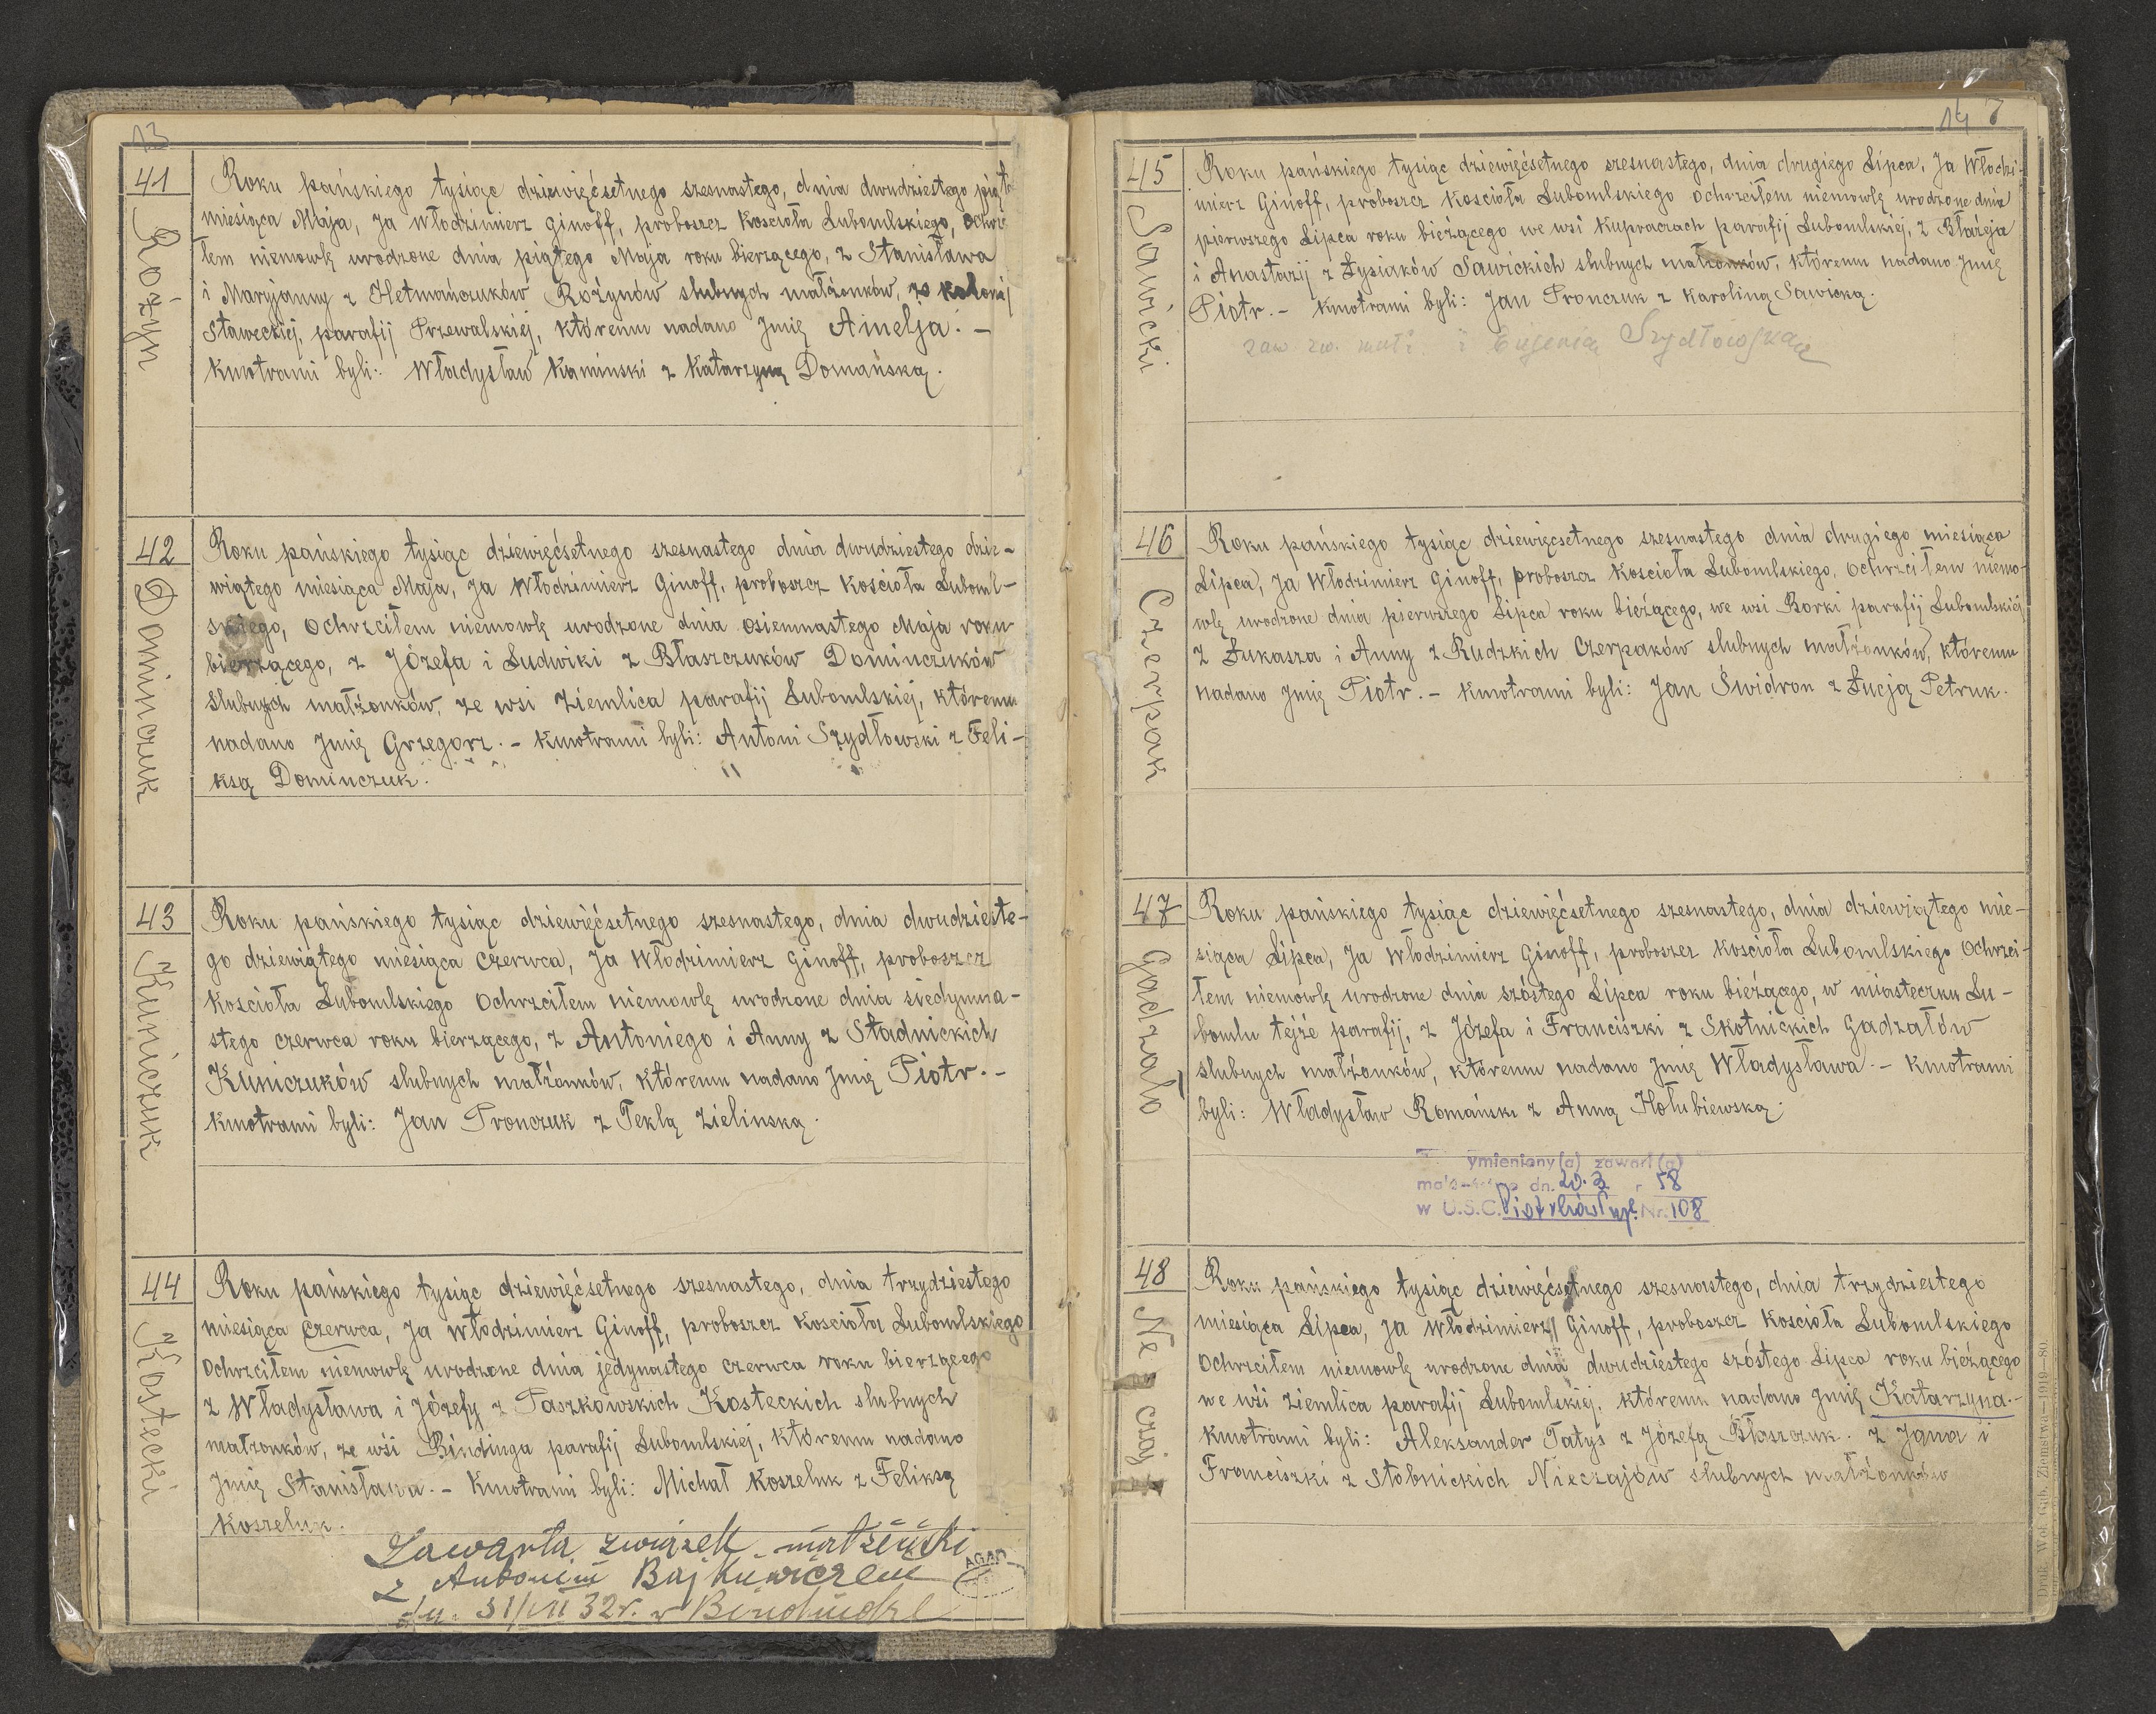 13
41
Rożyn
Roku pańskiego tysiąc dziewięćsetnego szesnastego, dnia dwudziestego piąte
miesiąca Maja, Ja Włodzimierz Ginoff, proboszcz Kościoła Lubomlskiego, ochrzi
łem niemowlę urodzone dnia piątego Maja roku bierzącego, z Stanisława
i Maryjanny z Hetmańczuków Rożynów slubnych małżonków, zo kolonij
Staweckiej, parafij Przewalskiej, któremu nadano Jmię Amelja. –
Kmotrami byli: Władysław Kaminski z Katarzyną Domańską.
42
Dominczuk
Roku pańskiego tysiąc dziewięćsetnego szesnastego dnia dwudziestego dzie-
wiątego miesiąca Maja, Ja Włodzimierz Ginoff, proboszcz Kościoła Luboml-
skiego, ochrzciłem niemowlę urodzone dnia osiemnastego Maja roku
bierzącego, z Józefa i Ludwiki z Błaszczuków Dominczuków
slubnych małżonków, ze wsi Ziemlica parafij Lubomlskiej, któremu
nadano Jmię Grzegorz. – Kmotrami byli: Antoni Szydłowski z Feli-
ksą Dominczuk.
43
Kuniczuk
Roku pańskiego tysiąc dziewięćsetnego szesnastego, dnia dwudzieste-
go dziewiątego miesiąca Czerwca, Ja Włodzimierz Ginoff, proboszcz
Kościoła Lubomlskiego ochrzciłem niemowlę urodzone dnia siedymna-
stego Czerwca roku bierzącego, z Antoniego i Anny z Stadnickich
Kuniczuków slubnych małżonków, któremu nadano Jmię Piotr. –
Kmotrami byli: Jan Pronczuk z Teklą Zielinską.
44
Kostecki
Roku pańskiego tysiąc dziewięćsetnego szesnastego, dnia trzydziestego
miesiąca Czerwca, Ja Włodzimierz Ginoff, proboszcz Kościoła Lubomlskiego
ochrzciłem niemowlę urodzone dnia jedynastego Czerwca roku bierzącego
z Władysława i Józefy z Paszkowskich Kosteckich slubnych
małzonków, ze wśi Bindinga parafij Lubomlskiej, któremu nadano
Jmię Stanisława. – Kmotrami byli: Michał Koszeluk z Feliksą
Koszeluk.
Zawarła związek małżeński
z Antonim Bajkiewiczem
dn. 31/VII 32r. w
AGAD
14 7
45
Sawicki
Roku pańskiego tysiąc dziewięćsetnego szesnastego, dnia drugiego Lipca, Ja Włodzi-
mierz Ginoff, proboszcz Kościoła Lubomlskiego ochrzciłem niemowlę urodzone dnia
pierwszego Lipca roku bieżącego we wsi Kupraczach parafij Lubomlskiej, z Błażeja
i Anastazij z Łysiaków Sawickich slubnych małżonków, któremu nadano Jmię
Piotr. – Kmotrami byli: Jan Pronczuk z Karoliną Sawicką.
zaw. zw. małż z Eugenią Szydłowską
46
Czerpak
Roku pańskiego tysiąc dziewięcsetnego szesnastego dnia drugiego miesiąca
Lipca, Ja Włodzimierz Ginoff, proboszcz Kościoła Lubomlskiego, ochrzciłem niemo-
wlę urodzone dnia pierwszego Lipca roku bieżącego, we wsi Borki parafij Lubomlskiej
z Łukasza i Anny z Rudzkich Czerpaków slubnych małżonków, któremu
nadano Jmię Piotr. – Kmotrami byli: Jan Świdron z Łucją Petruk.
47
Gadzało
Roku pańskiego tysiąc dziewięćsetnego szesnastego, dnia dziewiątego mie-
siąca Lipca, Ja Włodzimierz Ginoff, proboszcz Kościoła Lubomlskiego ochrzci-
łem niemowlę urodzone dnia szóstego Lipca roku bieżącego, w miasteczku Lu-
bomlu tejże parafij, z Józefa i Franciszki z Skotnickich Gadzałów
slubnych małżonków, któremu nadano Jmię Władysława. – Kmotrami
byli: Władysław Romański z Anną Hołubiewską.
ymieniony(a) zawarł(a)
dn. 20.3 r 58
w U.S.C. Piotrków Nr. 108
48
Ne czaj
Roku pańskiego tysiąc dziewięćsetnego szesnastego, dnia trzydziestego
miesiąca Lipca, Ja Włodzimierz Ginoff, proboszcz Kościoła Lubomlskiego
ochrzciłem niemowlę urodzone dnia dwudziestego szóstego Lipca roku bieżącego
we wśi Ziemlica parafij Lubomlskiej, któremu nadano Jmię Katarzyna. –
Kmotrami byli: Aleksander Tatys z Józefą Błaszczuk. z Jana i
Franciszki z Stobnickich Nieczajów slubnych małżonków
Druk. Woł. Gub. Ziemstwa—1919—80.